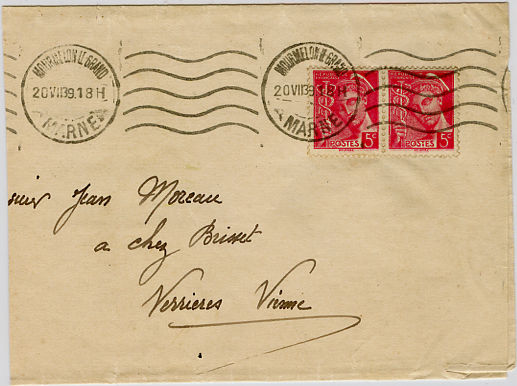 MOURMELON-LE-GRAND
20 VII 39.18H
MARNE
MOURMELON-LE-GRAND
20 VII 39.18H
MARNE
POSTES 5c
POSTES 5c
sieur Jean Moreau
a chez Brisset
Verrieres Vienne